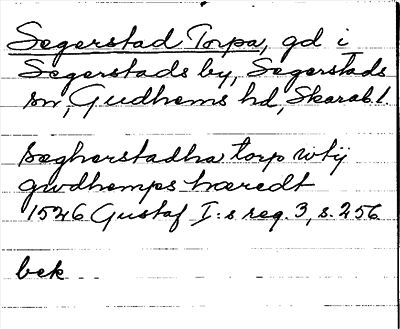 Segerstad Torpa, gd i
Segerstads by, Segerstads
sn, Gudhems hd, Skarab. l
Sægherstadha torp wtij
gwdhemps hæredt
1526 Gustaf I:s reg. 3, s. 256
bek